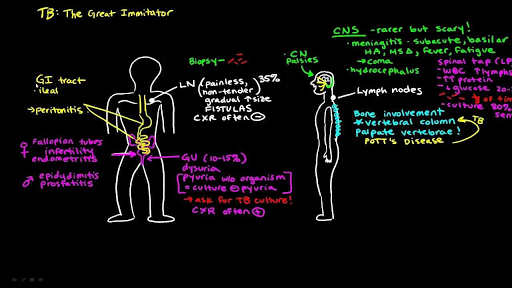 TB: The Great Immitator
CNS - rarer but scary!
· meningitis - subacute, basilar
HA, MSΔ, Fever, Fatigue
→ coma
· hydrocephalus
spinal tap (LP
- WBC ↑ lymph
- ↑↑ protein
- ↓ glucose 20-
of tim
- culture 80%
sen
· CN
Palsies
Biopsy -
LN (painless,
non-tender
gradual ↑ size
35%
FISTULAS
CXR often ⊖
GI tract
ileal
→ peritonitis
Lymph nodes
Bone involvement
* vertebral column
palpate vertebrae!
POTT'S Disease
TB
♀ Fallopian tubes
infertility
endometritis
♂ epididymitis
prostatitis
GU (10-15%)
dysuria
pyuria w/o organism
= culture ⊖ pyuria
→ ask for TB culture!
CXR often ⊕